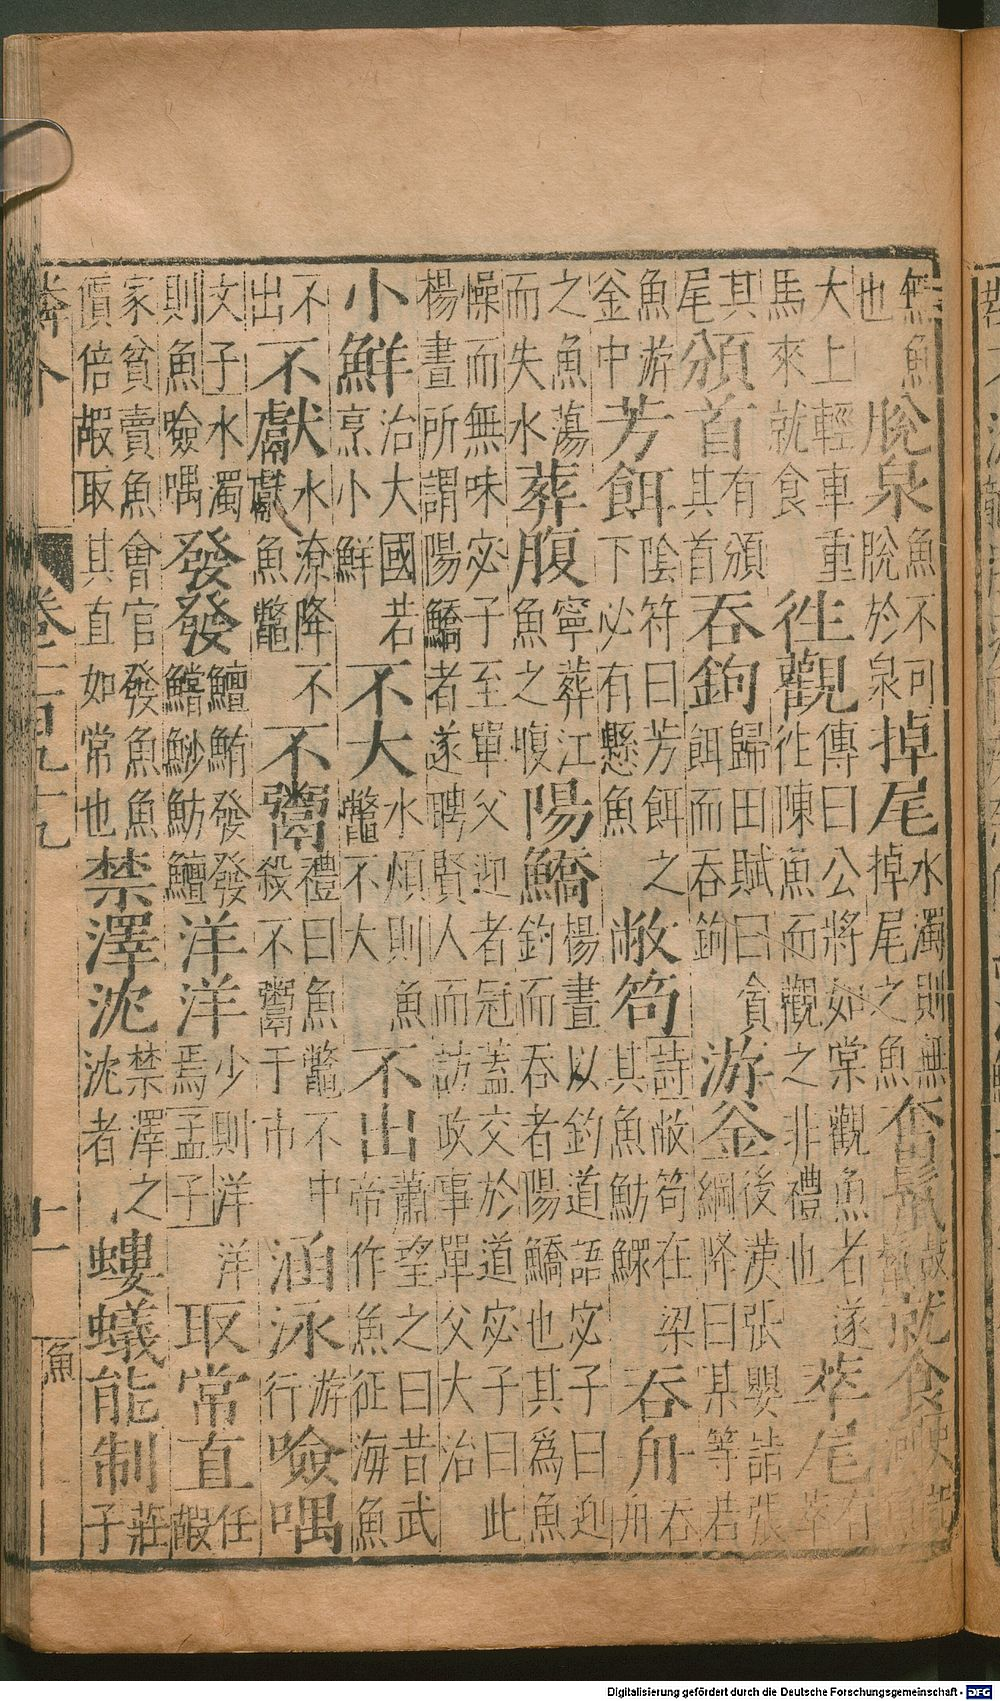 無魚也脫泉魚不可脫於泉掉尾水濁則無掉尾之魚奮鬣鼓就食
大上輕車重馬來就食徃觀傳曰公將如棠觀魚者遂徃陳魚而觀之非禮也莘尾
其尾頒首有頒其首吞鉤歸田賦曰貪餌而吞鉤游釜後漢張嬰詰張綱降曰某等若
魚游釜中芳餌陰符曰芳餌之下必有懸魚敝笱詩敝笱在梁其魚魴鰥吞舟吞舟
之魚蕩而失水葬腹寧葬江魚之腹陽鱎楊晝以釣道語宓子曰迎釣而吞者陽鱎也其為魚
懆而無味宓子至單父迎者冠蓋交於道宓子曰此楊晝所謂陽鱎者遂聘賢人而訪政事單父大治
小鮮治大國若烹小鮮不大水煩則魚鼈不大不出蕭望之曰昔武帝作魚征海魚
不出不獻水潦降不獻魚鼈不鬻禮曰魚鼈不中殺不鬻于市涵泳游行噞喁
文子水濁則魚噞喁發發鱣鮪發發鱨魦魴鱣洋洋少則洋洋焉孟子取常直任嘏
家貧賣魚會官發魚魚價倍嘏取其直如常也禁澤沈禁澤之沈者螻蟻能制莊子
卷一百九十九
魚
十一
Digitalisierung gefördert durch die Deutsche Forschungsgemeinschaft - DFG